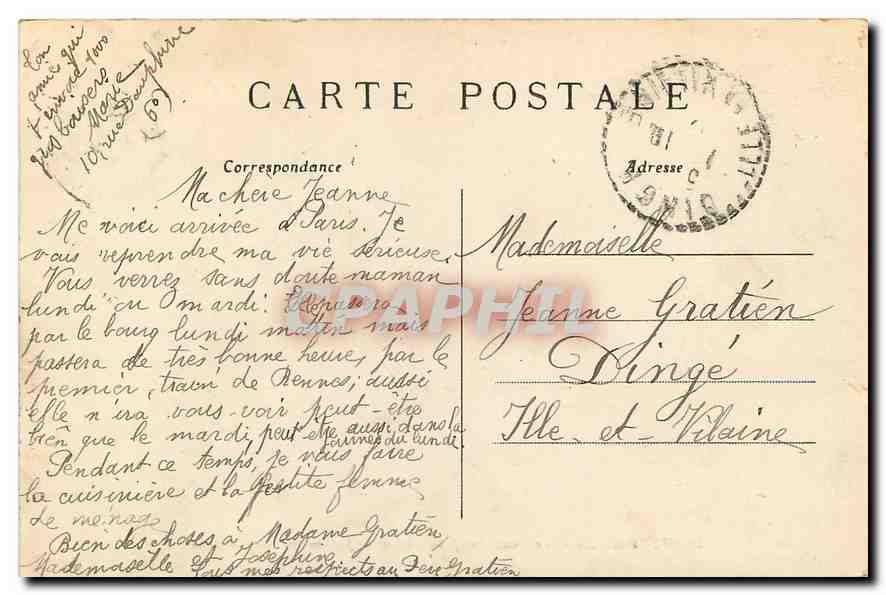 Ton
amie qui
t'envoie 1000
gros baisers
Marie
10, rue Dauphine
(6e)
CARTE POSTALE
Correspondance
Adresse
Ma chère Jeanne
Me voici arrivée à Paris. Je
vais reprendre ma vie sérieuse.
Vous verrez sans doute maman
lundi ou mardi. Elle passera
par le bourg lundi matin mais
passera de très bonne heure, par le
premier train de Rennes; aussi
elle n'ira vous voir peut-être
bien que le mardi, peut être aussi dans la
journée du lundi.
Pendant ce temps, je vais faire
la cuisinière et la petite femme
de ménage
Bien des choses à Madame Gratien,
Mademoiselle et Joséphine
Tous mes respects au Père Gratien
Mademoiselle
Jeanne Gratién
Dingé
Ille-et-Vilaine
DINGÉ
ILLE
CPAPHIL